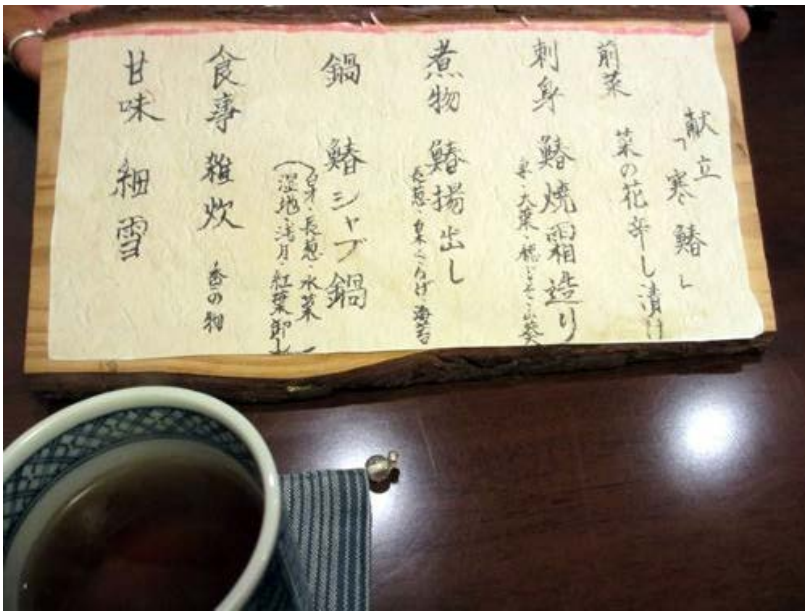 献立
「寒鰆」
前菜
菜の花辛し漬け
刺身 鰆焼霜造り
大葉・穂じそ・山葵
煮物 鰆揚出し
長葱・海苔
鍋 鰆シャブ鍋
長葱・水菜
湿地・浅月・紅葉卸し
食事 雑炊 香の物
甘味 細雪